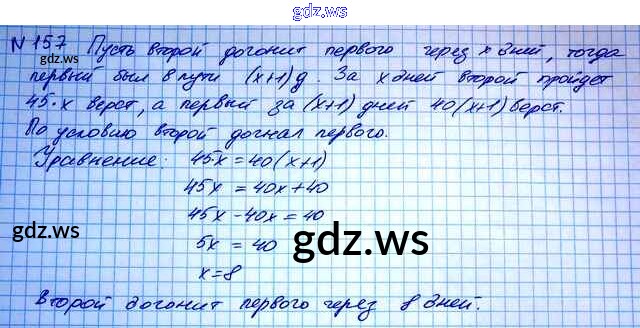 gdz.ws
N 157 Пусть второй догонит первого через x дней, тогда
первый был в пути (x+1)д. За x дней второй пройдет
45·x верст, а первый за (x+1) дней 40(x+1) верст.
По условию второй догнал первого.
Уравнение: 45x = 40(x+1)
45x = 40x+40
45x-40x = 40
gdz.ws
5x = 40
gdz.ws
x=8
Второй догонит первого через 8 дней.
gdz.ws